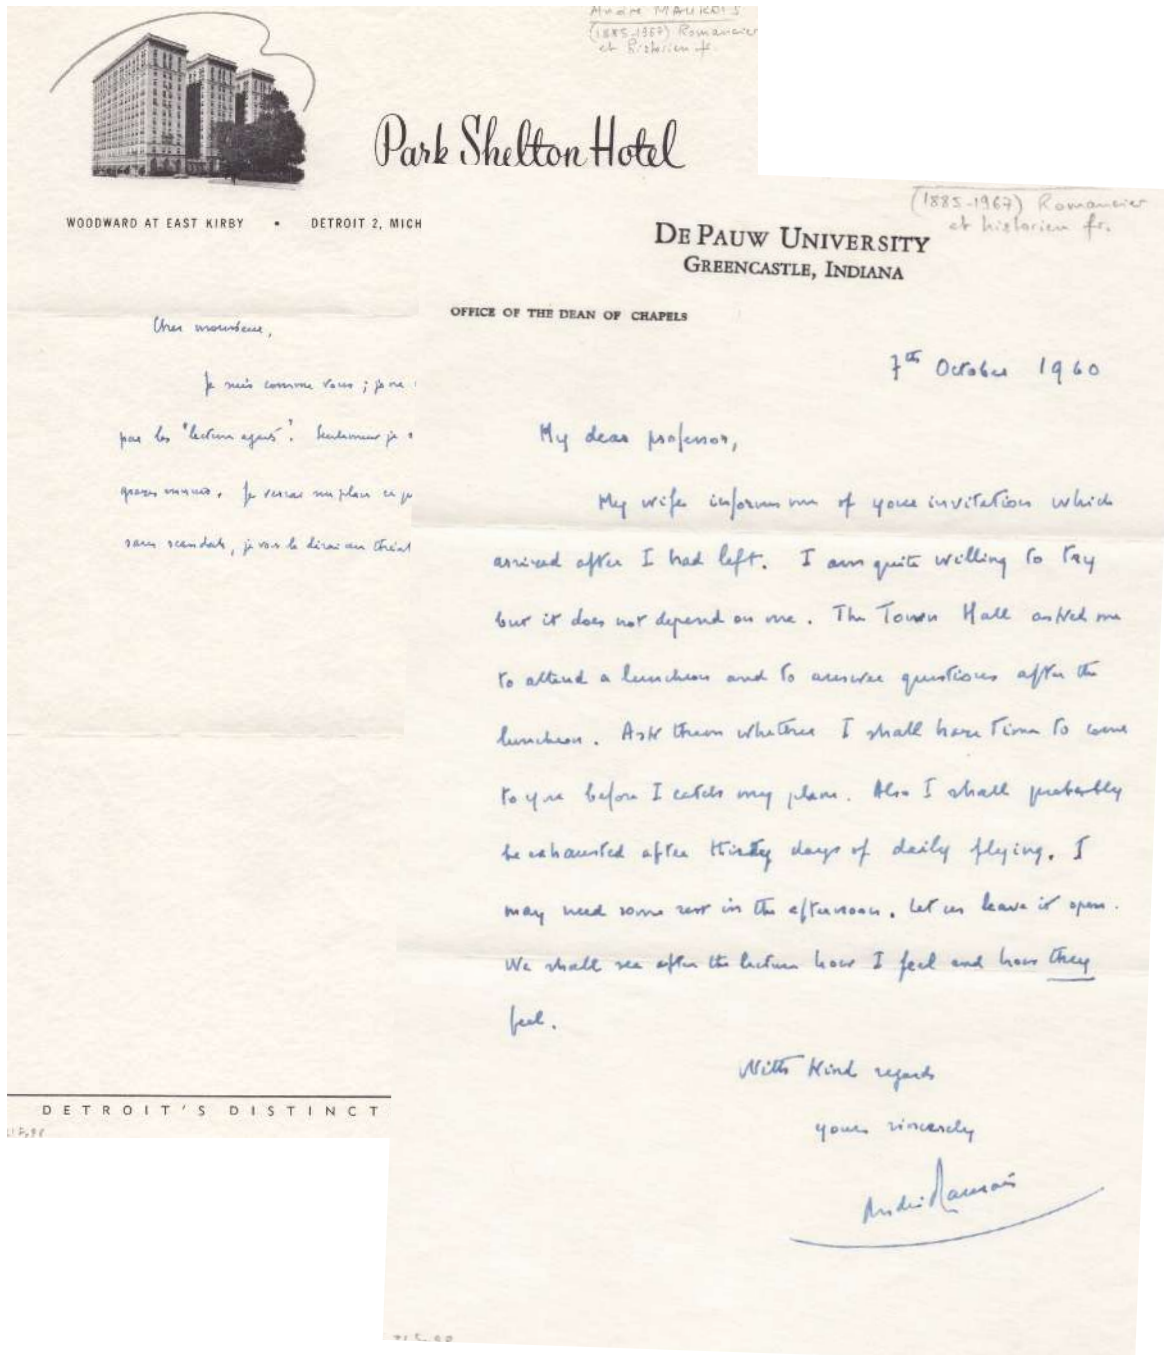 André MAUROIS
(1885-1967) Romancier
et historien fr.
Park Shelton Hotel
WOODWARD AT EAST KIRBY • DETROIT 2, MICH
Cher monsieur,
Je suis comme vous ; je ne
par les "lecture agents". Seulement je
sans scandale, je vous le dirai au
DETROIT'S DISTINCT
(1885-1967) Romancier
et historien fr.
DE PAUW UNIVERSITY
GREENCASTLE, INDIANA
OFFICE OF THE DEAN OF CHAPELS
7th October 1960
My dear professor,
My wife informs me of your invitation which
arrived after I had left. I am quite willing to try
but it does not depend on me. The Town Hall asked me
to attend a luncheon and to answer questions after the
luncheon. Ask them whether I shall have time to come
to you before I catch my plane. Also I shall probably
be exhausted after thirty days of daily flying. I
may need some rest in the afternoon. Let us leave it open.
We shall see after the lecture how I feel and how they
feel.
With kind regards
yours sincerely
André Maurois